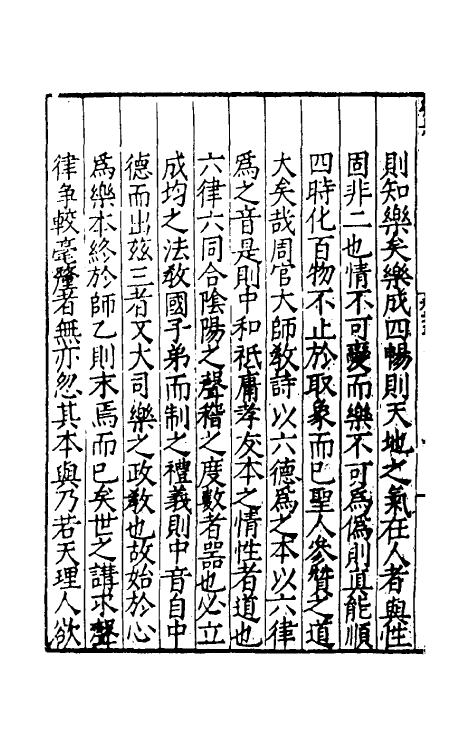 則知樂矣樂成四暢則天地之氣在人者與性
固非二也情不可變而樂不可為偽則真能順
四時化百物不止於取象而已聖人參贊之道
大矣哉周官大師教詩以六德為之本以六律
為之音是則中和祗庸孝友本之情性者道也
六律六同合陰陽之聲稽之度數者器也必立
成均之法教國子弟而制之禮義則中音自中
德而出茲三者又大司樂之政教也故始於心
為樂本終於師乙則末焉而已矣世之講求聲
律争較毫釐者無亦忽其本與乃若天理人欲